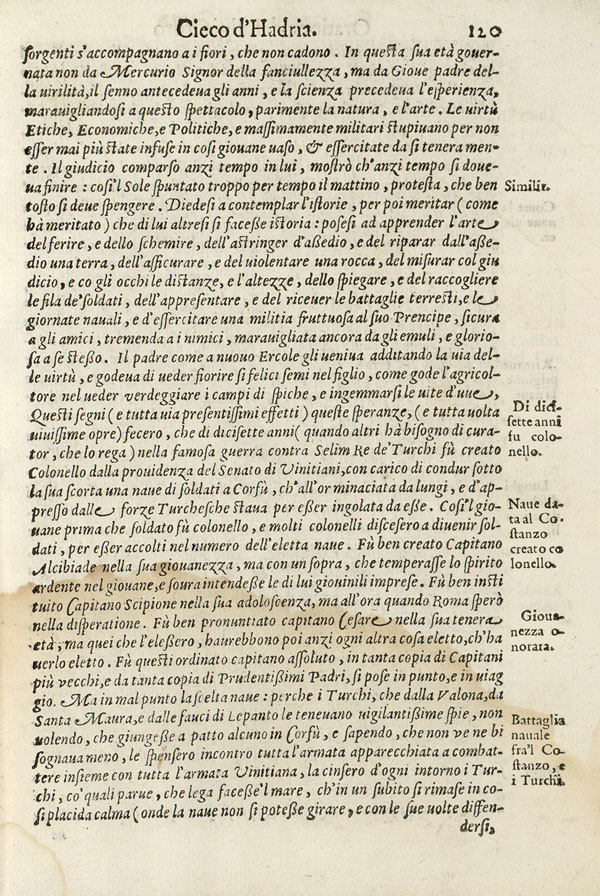 Cieco d'Hadria. 120
sorgenti s'accompagnano a i fiori, che non cadono. In questa sua età gouer-
nata non da Mercurio Signor della fanciullezza, ma da Gioue padre del-
la uirilità, il senno antecedeua gli anni, e la scienza precedeua l'esperienza,
marauigliandosi a questo spettacolo, parimente la natura, e l'arte. Le uirtù
Etiche, Economiche, e Politiche, e massimamente militari stupiuano per non
esser mai più state infuse in cosi giouane uaso, & essercitate da si tenera men-
te. Il giudicio comparso anzi tempo in lui, mostrò ch'anzi tempo si doue-
ua finire: cosi'l Sole spuntato troppo per tempo il mattino, protesta, che ben
tosto si deue spengere. Diedesi a contemplar l'istorie, per poi meritar (come
hà meritato) che di lui altresi si facesse istoria: posesi ad apprender l'arte
del ferire, e dello schemire, dell'astringer d'assedio, e del riparar dall'asse-
dio una terra, dell'assicurare, e del uiolentare una rocca, del misurar col giu
dicio, e co gli occhi le distanze, e l'altezze, dello spiegare, e del raccogliere
le fila de'soldati, dell'appresentare, e del riceuer le battaglie terrestri, e le
giornate nauali, e d'essercitare una militia fruttuosa al suo Prencipe, sicura
a gli amici, tremenda a i nimici, marauigliata ancora da gli emuli, e glorio-
sa a se stesso. Il padre come a nuouo Ercole gli ueniua additando la uia del-
le uirtù, e godeua di ueder fiorire si felici semi nel figlio, come gode l'agricol-
tore nel ueder verdeggiare i campi di spiche, e ingemmarsi le uite d'uue,
Questi segni (e tutta uia presentissimi effetti) queste speranze, (e tutta uolta
uiuissime opre) fecero, che di dicisette anni (quando altri hà bisogno di cura-
tor, che lo rega) nella famosa guerra contra Selim Re de'Turchi fù creato
Colonello dalla prouidenza del Senato di Vinitiani, con carico di condur sotto
la sua scorta una naue di soldati a Corfù, ch'all'or minaciata da lungi, e d'ap-
presso dalle forze Turchesche staua per esser ingolata da esse. Cosi'l gio-
uane prima che soldato fù colonello, e molti colonelli discesero a diuenir sol-
dati, per esser accolti nel numero dell'eletta naue. Fù ben creato Capitano
Alcibiade nella sua giouanezza, ma con un sopra, che temperasse lo spirito
ardente nel giouane, e soura intendesse le di lui giouinili imprese. Fù ben insti
tuito Capitano Scipione nella sua adoloscenza, ma all'ora quando Roma sperò
nella disperatione. Fù ben pronuntiato capitano Cesare nella sua tenera
età, ma quei che l'elessero, haurebbono poi anzi ogni altra cosa eletto, ch'ha
uerlo eletto. Fù questi ordinato capitano assoluto, in tanta copia di Capitani
più vecchi, e da tanta copia di Prudentissimi Padri, si pose in punto, e in uiag
gio. Ma in mal punto la scelta naue: perche i Turchi, che dalla Valona, da
Santa Maura, e dalle fauci di Lepanto le teneuano uigilantissime spie, non
uolendo, che giungesse a patto alcuno in Corfù, e sapendo, che non ve ne bi
sognaua meno, le spensero incontro tutta l'armata apparecchiata a combat-
tere insieme con tutta l'armata Vinitiana, la cinsero d'ogni intorno i Tur-
chi, co'quali parue, che lega facesse'l mare, ch'in un subito si rimase in co-
si placida calma (onde la naue non si potesse girare, e con le sue uolte diffen-
dersi,
Simili.
Di dici-
sette anni
fu colo-
nello.
Naue da-
ta al Co-
stanzo
creato co
lonello.
Gioua-
nezza o-
norara.
Battaglia
nauale
fra'l Co-
stanzo, e
i Turchi.